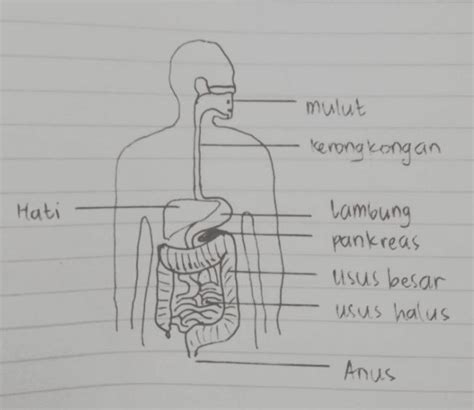 mulut
kerongkongan
Hati
Lambung
pankreas
usus besar
usus halus
Anus